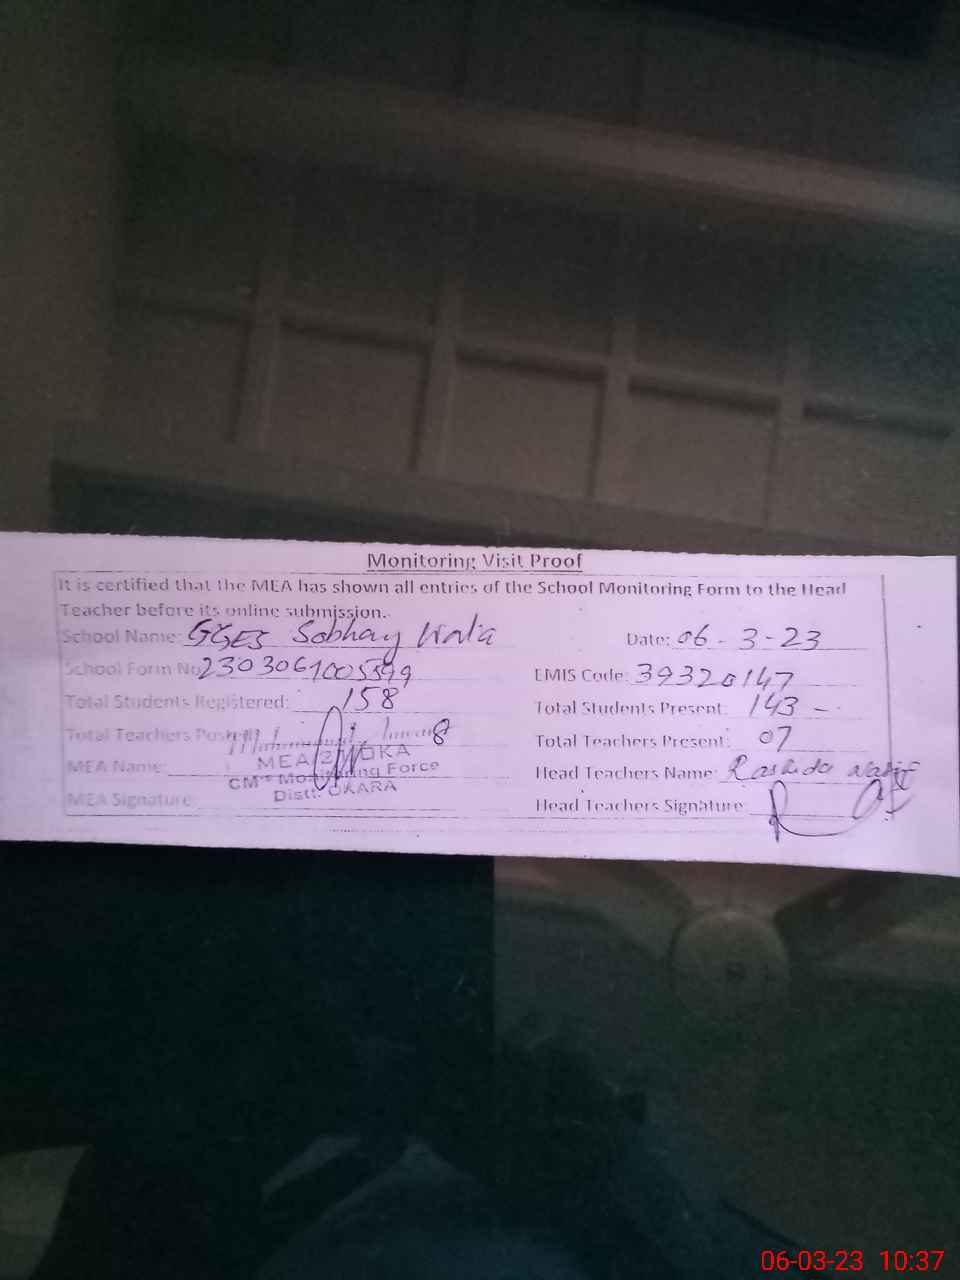 Monitoring Visit Proof
It is certified that the MEA has shown all entries of the School Monitoring Form to the Head
Teacher before its online submission.
School Name: GGES Sobhay Wala Date: 06-3-23
School Form No 2303061005399 EMIS Code: 39320147
Total Students Registered: 158 Total Students Present: 143
Total Teachers Posted 8 Total Teachers Present: 07
MEA Name: MEA (2) OKA Head Teachers Name: Rashida
CM's Monitoring Force
MEA Signature Distt. OKARA Head Teachers Signature:
06-03-23 10:37